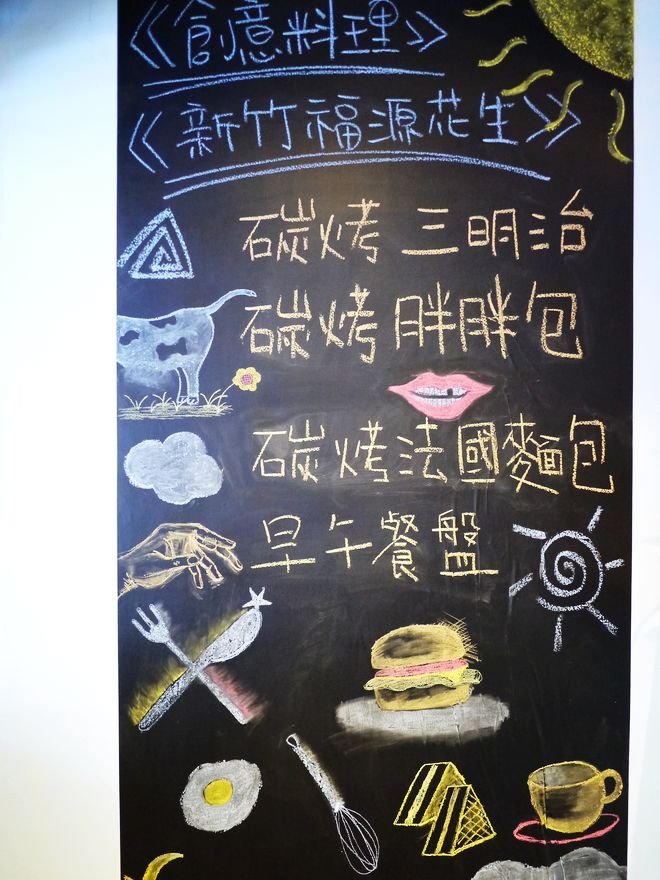 《創意料理》
《新竹福源花生》
碳烤三明治
碳烤胖胖包
碳烤法國麵包
早午餐盤